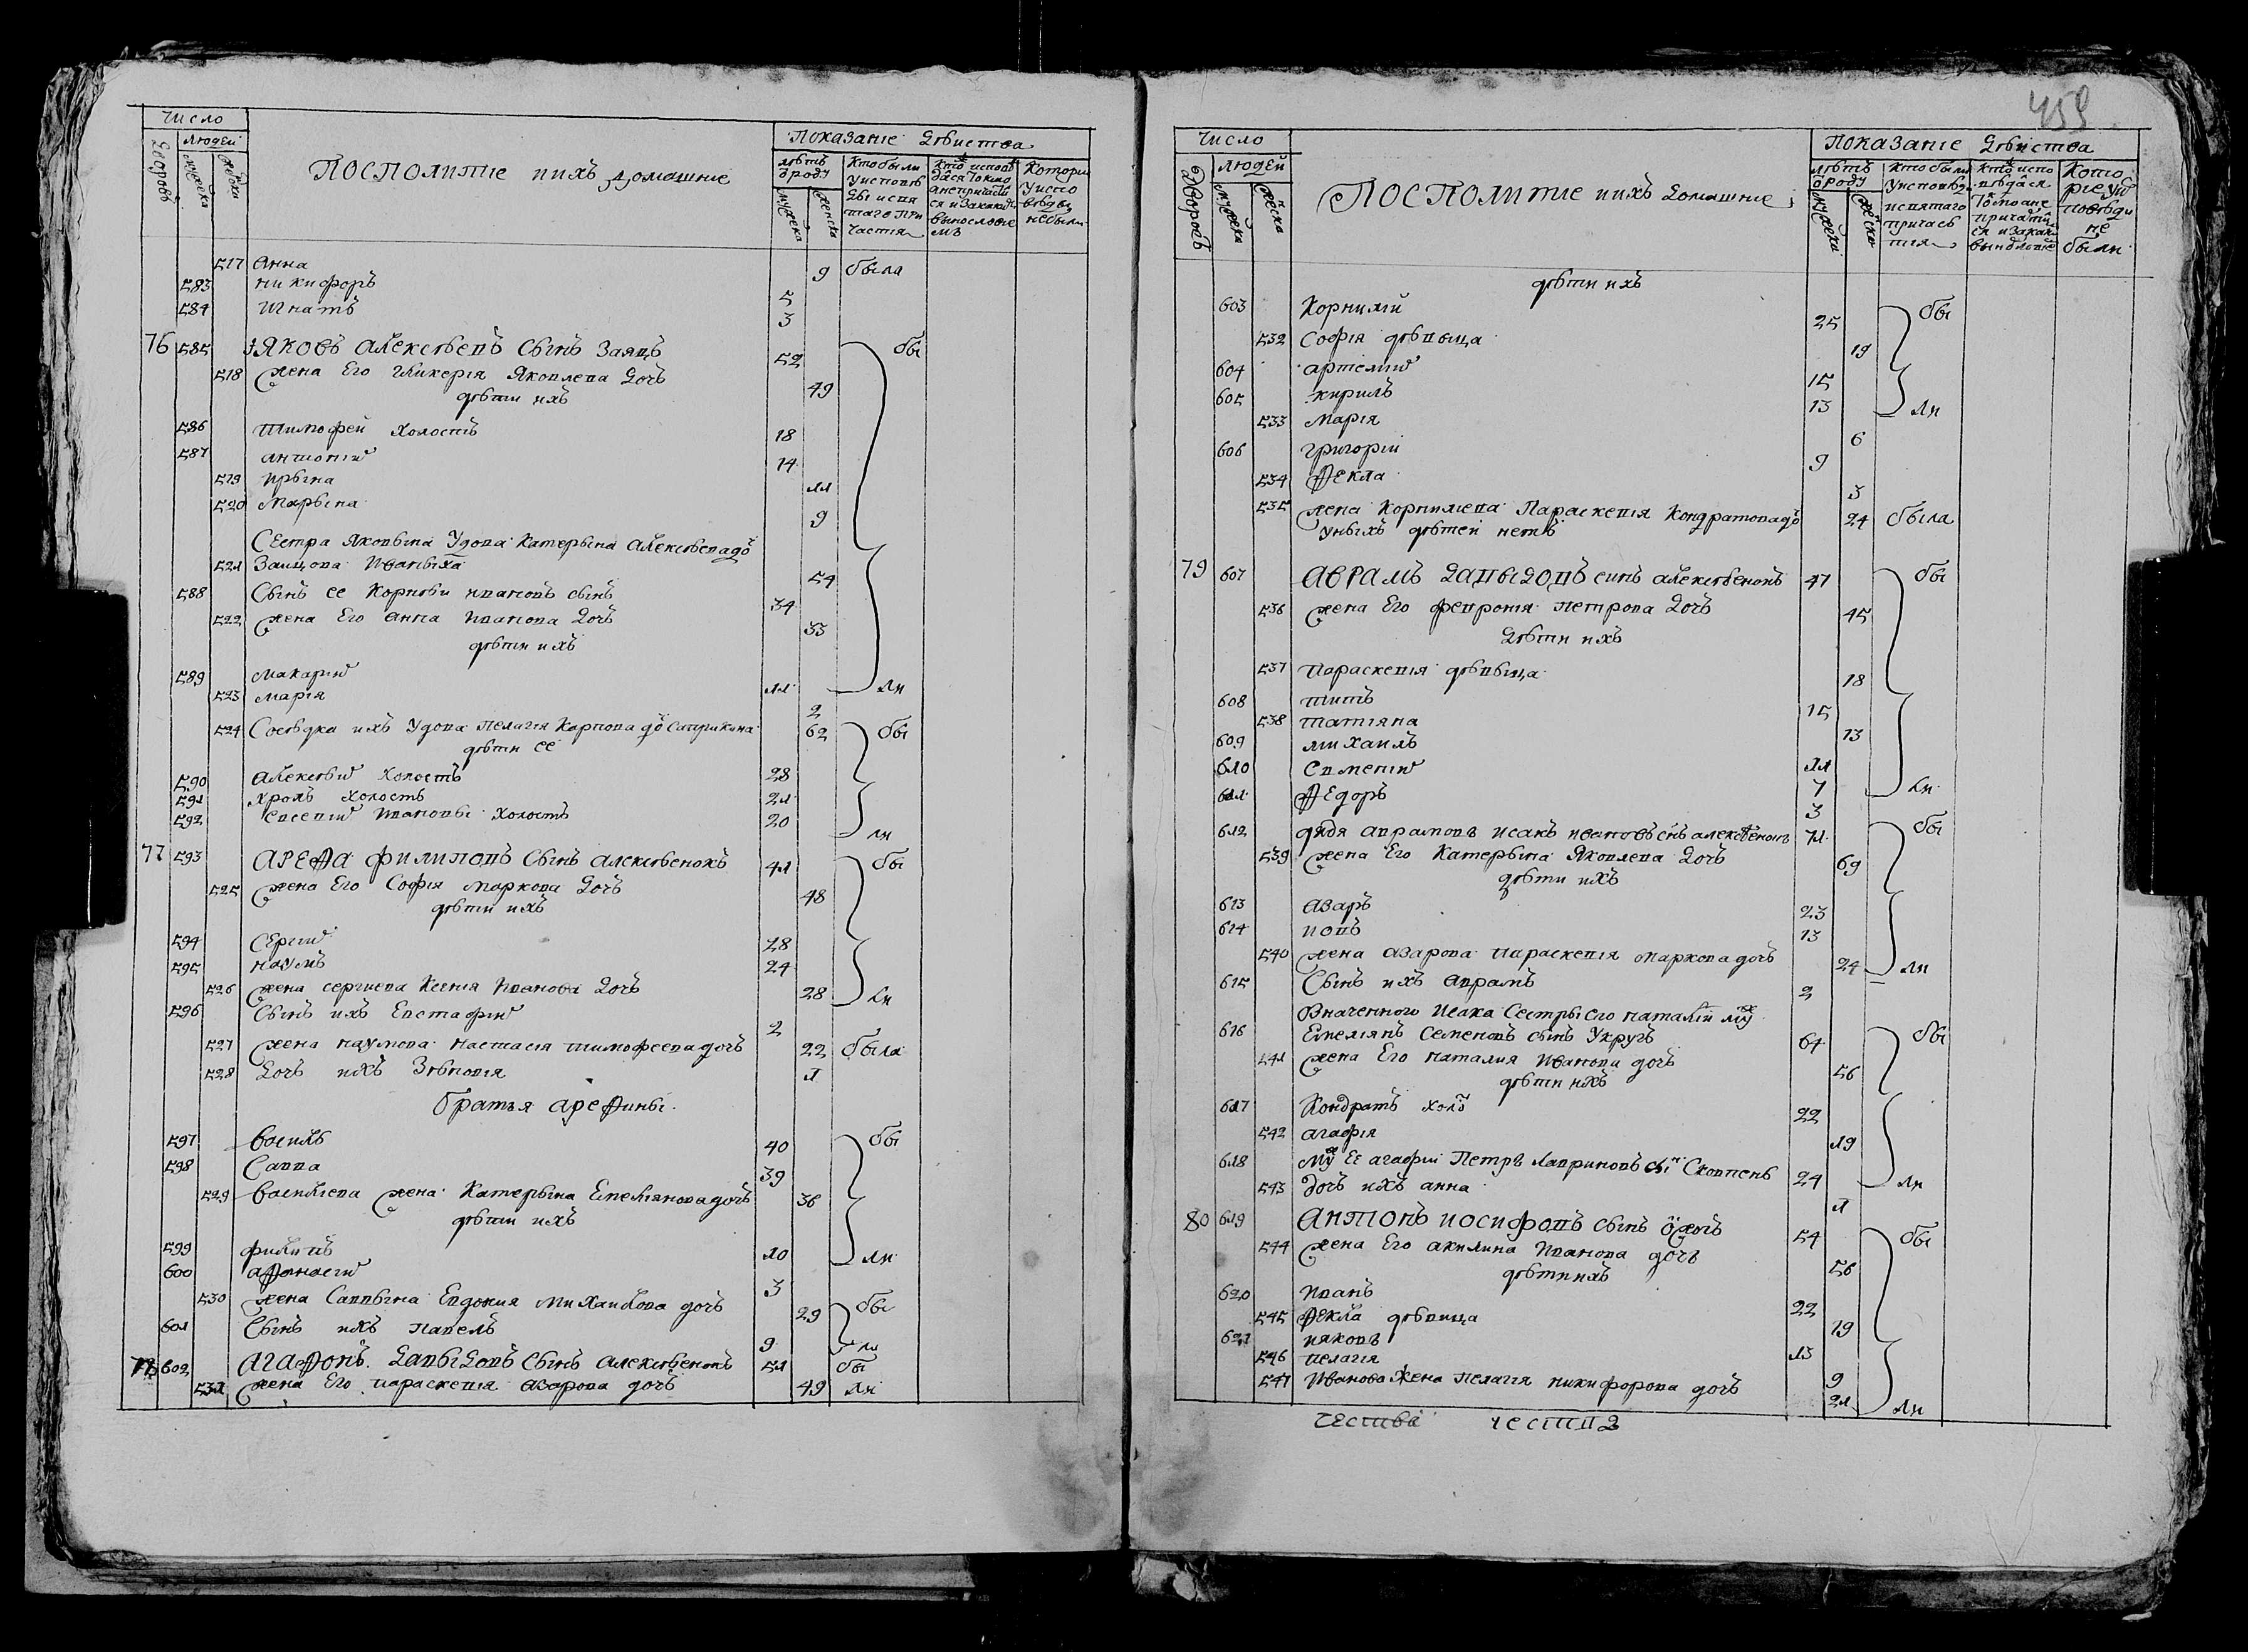 Число
Людей
Дворовъ
мужеска
женска
ПОСПОЛИТІЕ ИИХЪ домашніе
Показаніе Дѣиства
лѣтъ ѿроду
мужеска
женска
Кто были уисповѣди исвятаго причастія
Кто исповѣдался токмо анепричастился изакакимъ винословіемъ
Которіи уисповѣди небыли
517 Анна 9 была
583 никифоръ 5
584 Игнатъ 3
76 585 ЯКОВЪ алексѣевъ сынъ Заяцъ 52 бы
518 жена Его гликерія Яковлева дочь 49
дѣти ихъ
586 тимофей холостъ 18
587 антоній 14
519 Ирына 11
520 Марына 9
Сестра Яковына Удова Катерына алексѣева до
521 Заицова Иваныха 54
588 Сынъ ее Корнѣи ивановъ сынъ 34
522 жена Его анна иванова дочь 33
дѣти ихъ
589 макарій 11
523 марія 2 ли
524 Сосѣдка ихъ Удова пелагія Карпова до Саприкина 62 бы
дѣти ее
590 алексѣй холостъ 28
591 хролъ холостъ 21
592 евсевій ивановы холостъ 20 ли
77 593 АРЕѲА филиповъ сынъ алексѣенокъ 41 бы
525 жена Его Софія маркова дочь 48
дѣти ихъ
594 сергій 28
595 наумъ 24
526 жена сергиева Ксенія Иванова дочь 28 ли
596 Сынъ ихъ Евстафій 2
527 жена наумова настасія тимофеева дочь 22 была
528 дочь ихъ Зѣновія 1
братья ареѲины
597 василь 40 бы
598 Савва 39
529 василіева жена Катерына Емеліянова дочь 36
дѣти ихъ
599 филипъ 10 ли
600 аѲанасій 3
530 жена Саввына Евдокия михайлова дочь 29 бы
601 Сынъ ихъ павелъ 9 ли
78 602 АГАѲОНЪ давыдовъ сынъ алексѣенокъ 51 бы
531 жена Его параскевія азарова дочь 49 ли
459
Число
Людей
Дворовъ
мужеска
женска
ПОСПОЛИТІЕ иихъ домашніе
Показаніе Дѣиства
лѣтъ ѿроду
мужеска
женска
Кто были уисповѣди исвятаго причастія
Кто исповѣдался токмо анепричастился изакакимъ винословіем
Которіе уисповѣди не были
дѣти ихъ
603 Корнилій 25 бы
532 Софія дѣвыца 19
604 артемій 15
605 кирилъ 13 ли
533 марія 6
606 григорій 9
534 Ѳекла 3
535 жена Корнилиева Параскевія Кондратова до 24 была
уныхъ дѣтей нетъ
79 607 АВРАМЪ давыдовъ синъ алексѣенокъ 47 бы
536 жена Его февронія петрова дочъ 45
дѣти ихъ
537 параскевія дѣвыца 18
608 титъ 15
538 татіяна 13
609 михаилъ 11
610 евменій 7
611 Ѳедоръ 3 ли
612 дядя аврамовъ исакъ ивановъ снъ алексѣенокъ 71 бы
539 жена Его Катерына Яковлева дочъ 69
дѣти ихъ
613 азаръ 23
614 иовъ 13
540 жена азарова параскевія маркова дочъ 24 ли
615 Сынъ ихъ аврамъ 2
Означенного Исака Сестры его наталіи мужъ
616 Емеліянъ Семеновъ сынъ Укругъ 64 бы
541 жена Его наталия Иванова дочъ 56
дѣти ихъ
617 Кондратъ холо 22
542 агафія 19
618 мужъ Ее агафии Петръ лавриновъ сынъ Сковпень 24 ли
543 дочъ ихъ анна 1
80 619 АНТОНЪ иосифовъ сынъ Ожогъ 54 бы
544 жена Его акилина Иванова дочъ 56
дѣти ихъ
620 Иванъ 22
545 Ѳекла дѣвица 19
621 ияковъ 13
546 пелагія 9
547 Иванова Жена пелагія никифорова дочъ 21 ли